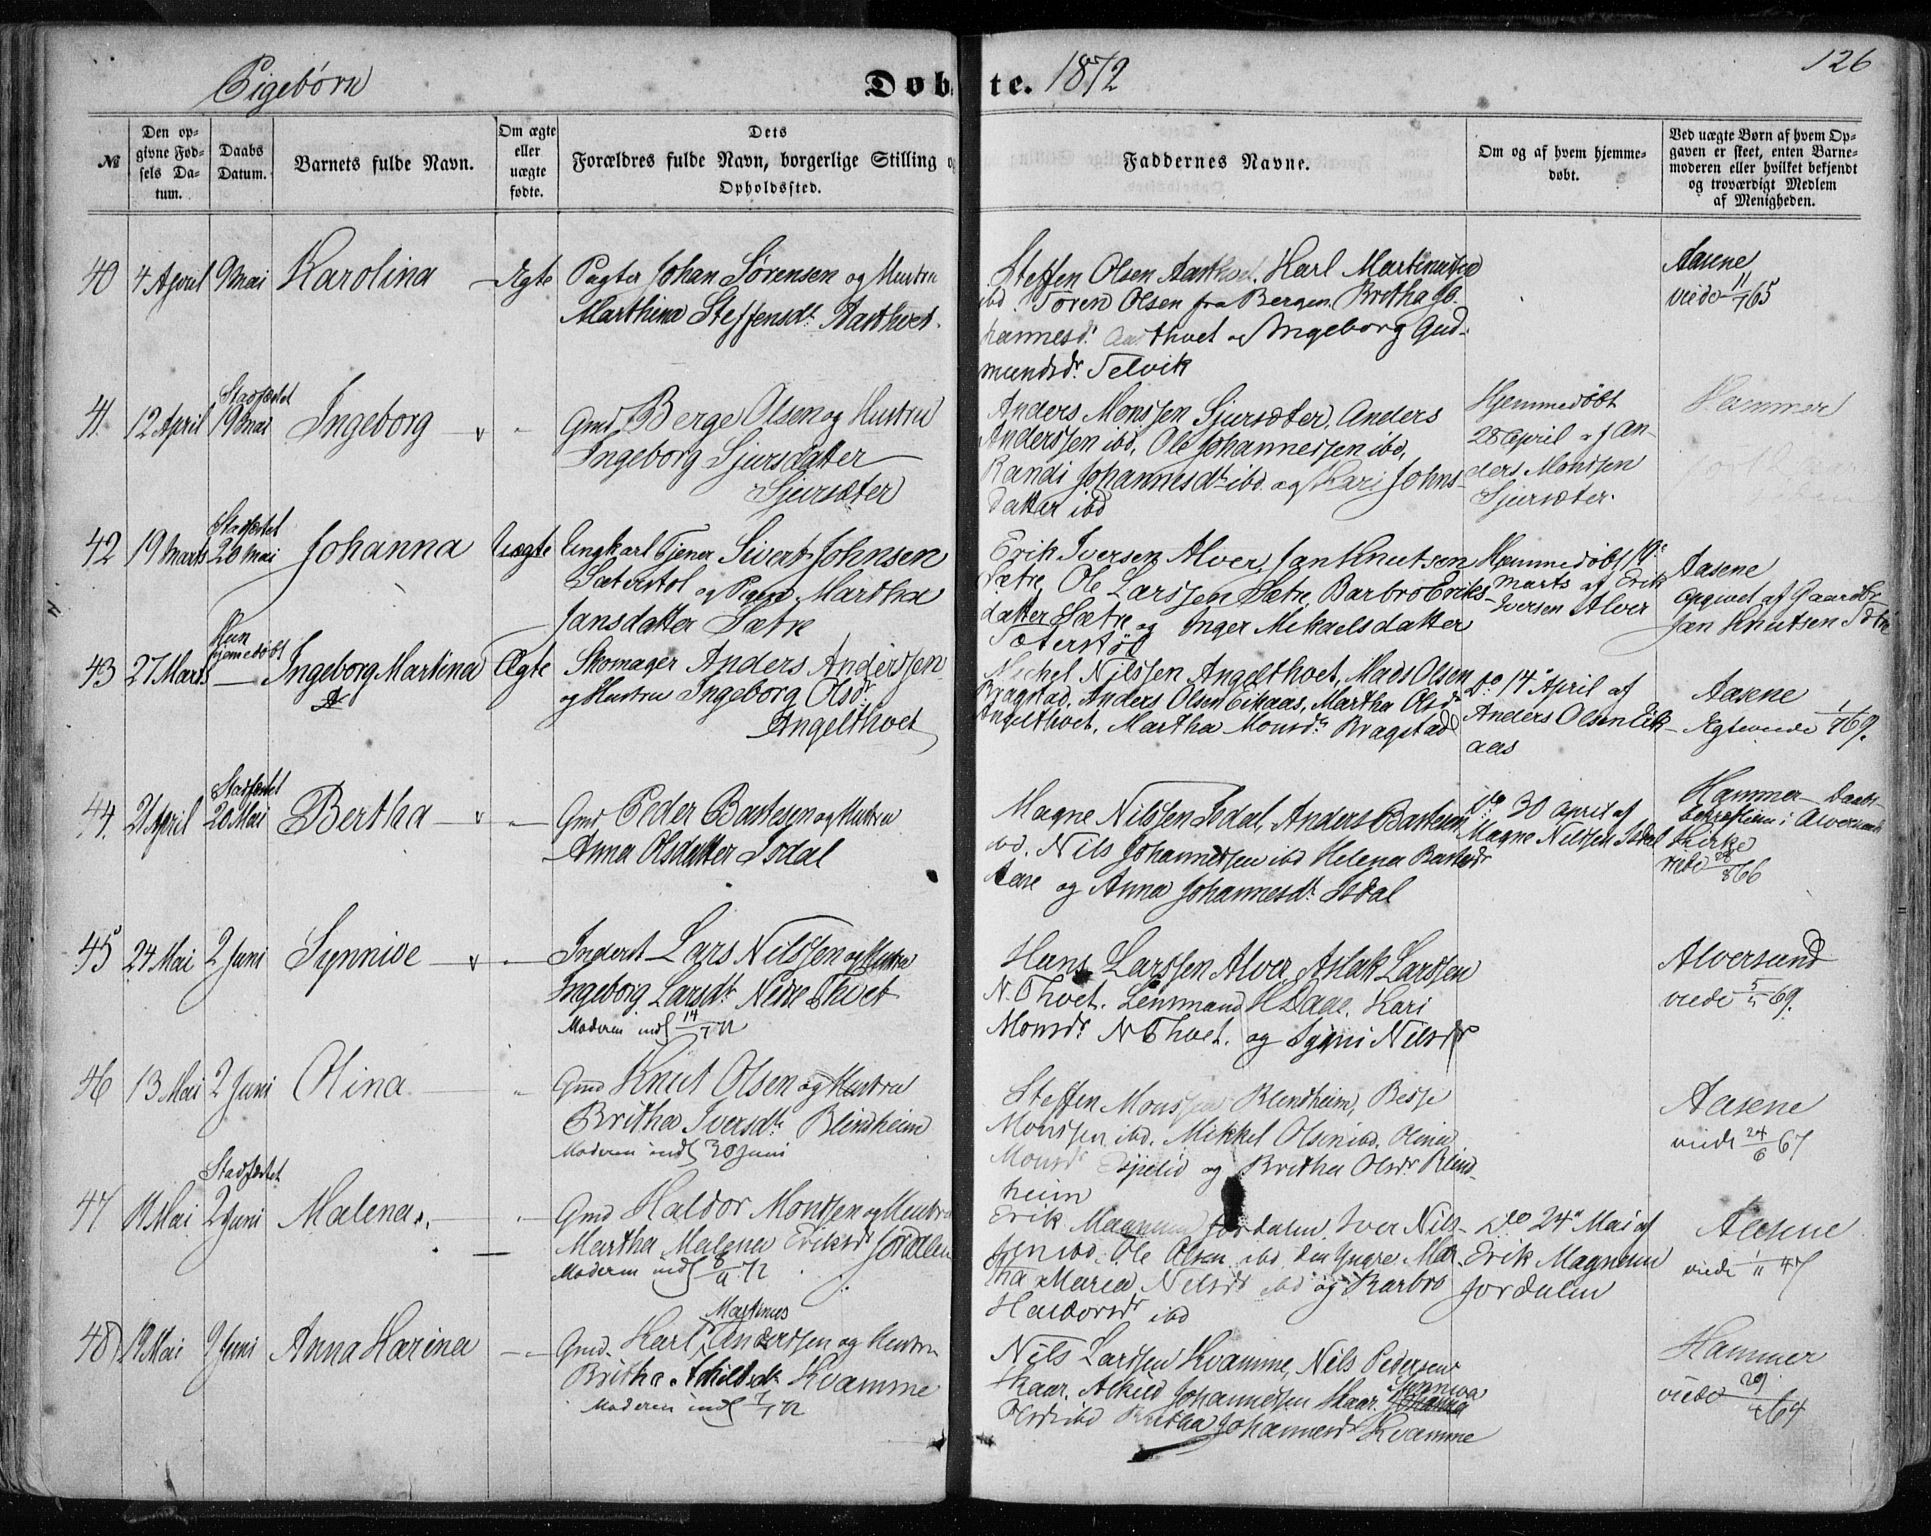 Pigebørn
Døbte. 1872
126
№
Den op-
givne Fød-
sels Da-
tum.
Daabs
Datum.
Barnets fulde Navn.
Om ægte
eller
uægte
fødte.
Dets
Forældres fulde Navn, borgerlige Stilling
Opholdssted.
Faddernes Navne.
Om og af hvem hjemme-
døbt.
Ved uægte Børn af hvem Op-
gaven er skeet, enten Barne-
moderen eller hvilket bekjendt
og troværdigt Medlem
af Menigheden.
40 4 April 9 Mai Karolina Ægte
Pagter Johan Sørensen og Hustru
Marthina Steffensdr.
Steffen Olsen Karl Martinussen
ibd. Søren Olsen fra Bergen, Britha Jo-
hannesdr. og Ingeborg Gud-
mundsdr. Selvik
Aasene
viede 11/7 65
41 12 April Stadfæstet 19 Mai Ingeborg
Gmd Berge Olsen og Hustru
Ingeborg Sjursdatter
Sjursæter
Anders Monssen Sjursæter, Anders
Anderssen ibd, Ole Johannessen ibd,
Randi Johannesdr ibd og Kari Johns-
datter ibd
Hjemmedøbt
28 April af An-
ders Monssen
Sjursæter.
Hammer
42 19 Marts Stadfæstet 20 Mai Johanna Uægte
Ungkarl Tjener Sivert Johnsen
Sæterstøl og Pigen Martha
Jansdatter Sætre
Erik Iversen Alver, Jan Knutsen
Sætre, Ole Larssen Sætre, Barbro Eriks-
datter Sætre og Inger Mikaelsdatter
Sæterstøl
Hjemmedøbt 19
Marts af Erik
Iversen Alver
Aasene
opgivet af Gaardbr
Jan Knutsen
43 27 Marts Kun hjemedøbt — Ingeborg Martina Ægte
Skomager Anders Anderssen
og Hustru Ingeborg Olsdr
Angelthvet
Michel Nilssen Angelthvet, Mads Olsen
Bragstad, Anders Olsen Eikaas, Martha Olsdr
Angelthvet, Martha Monsdr Bragstad
Do 14 April af
Anders Olsen Eik-
aas
Aasene
Ægteviede 1/7 69.
44. 21 April Stadfæstet 20 Mai Bertha
Gmd Peder Bastesen og Hustru
Anna Olsdatter Isdal
Magne Nilssen Isdal, Anders Bastesen
ibd. Nils Johannessen ibd Helena Bastesdr
og Anna Johannesdr Isdal
Do 30 April af
Magne Nilssen Isdal
Hammer
Kirke
viede 28/8 66
45 24 Mai 2 Juni Synnive
Inderst Lars Nilssen og Hustru
Ingeborg Larsdr Nedre Thvet
Moderen indl 14/7 72
Hans Larssen Alver, Aslak Larssen
N Thvet, Lensmand Kari
Monsdr N Thvet. og Nilsdr
Alversund
viede 69.
46 13 Mai 2 Juni Olina
Gmd Knut Olsen og Hustru
Britha Iversdr Blindheim
Moderen indl 30 Juni
Steffen Monssen Blindheim, Besse
Monssen ibd. Mikkel Olsen ibd. Olina
Monsdr Espelid og Britha Olsdr Blind-
heim
Aasene
viede 24/6 67
47 19 Mai Stadfæstet 2 Juni Malena
Gmd Haldor Monssen og Hustru
Martha Malena Eriksdr Jordalen
Moderen indl 8/9 72
Erik Magnesen Jordalen, Iver Nils-
sen ibd. Ole Olsen ibd den yngre Mar-
tha Maria Nilsdr ibd og Barbro
Haldorsdr ibd
Do 24 Mai af
Erik Magnesen
Jordalen
Aasene
viede 1/11 47
48 19 Mai 9 Juni Anna Karina
Gmd. Karl Martinus Anderssen og Hustru
Britha Kvamme
Moderen indl 7/7 72
Nils Larssen Kvamme, Nils Pedersen
Skaar, Johannessen Skaar, Synneva
Olsdr ibd Britha Johannesdr Kvamme
Hammer
viede 64